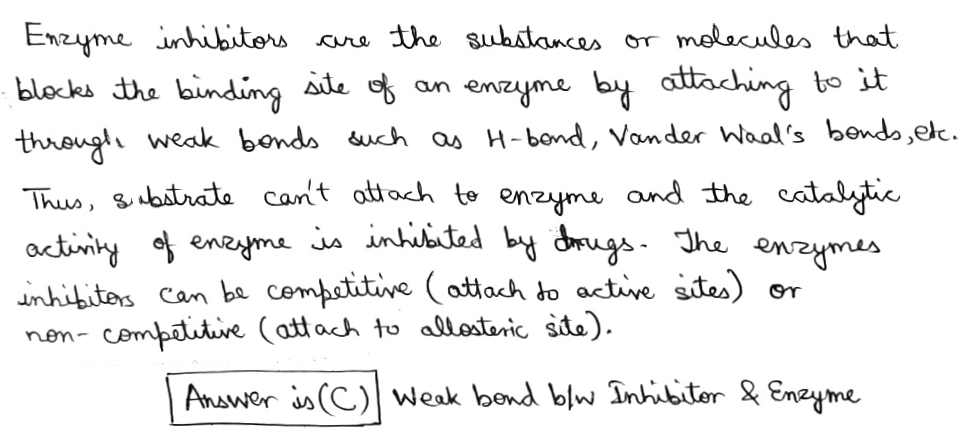 Enzyme inhibitors are the substances or molecules that
blocks the binding site of an enzyme by attaching to it
through weak bonds such as H-bond, Vander Waal's bonds, etc.
Thus, substrate can't attach to enzyme and the catalytic
activity of enzyme is inhibited by drugs. The enzymes
inhibitors can be competitive (attach to active sites) or
non-competitive (attach to allosteric site).
Answer is (C) Weak bond b/w Inhibitor & Enzyme